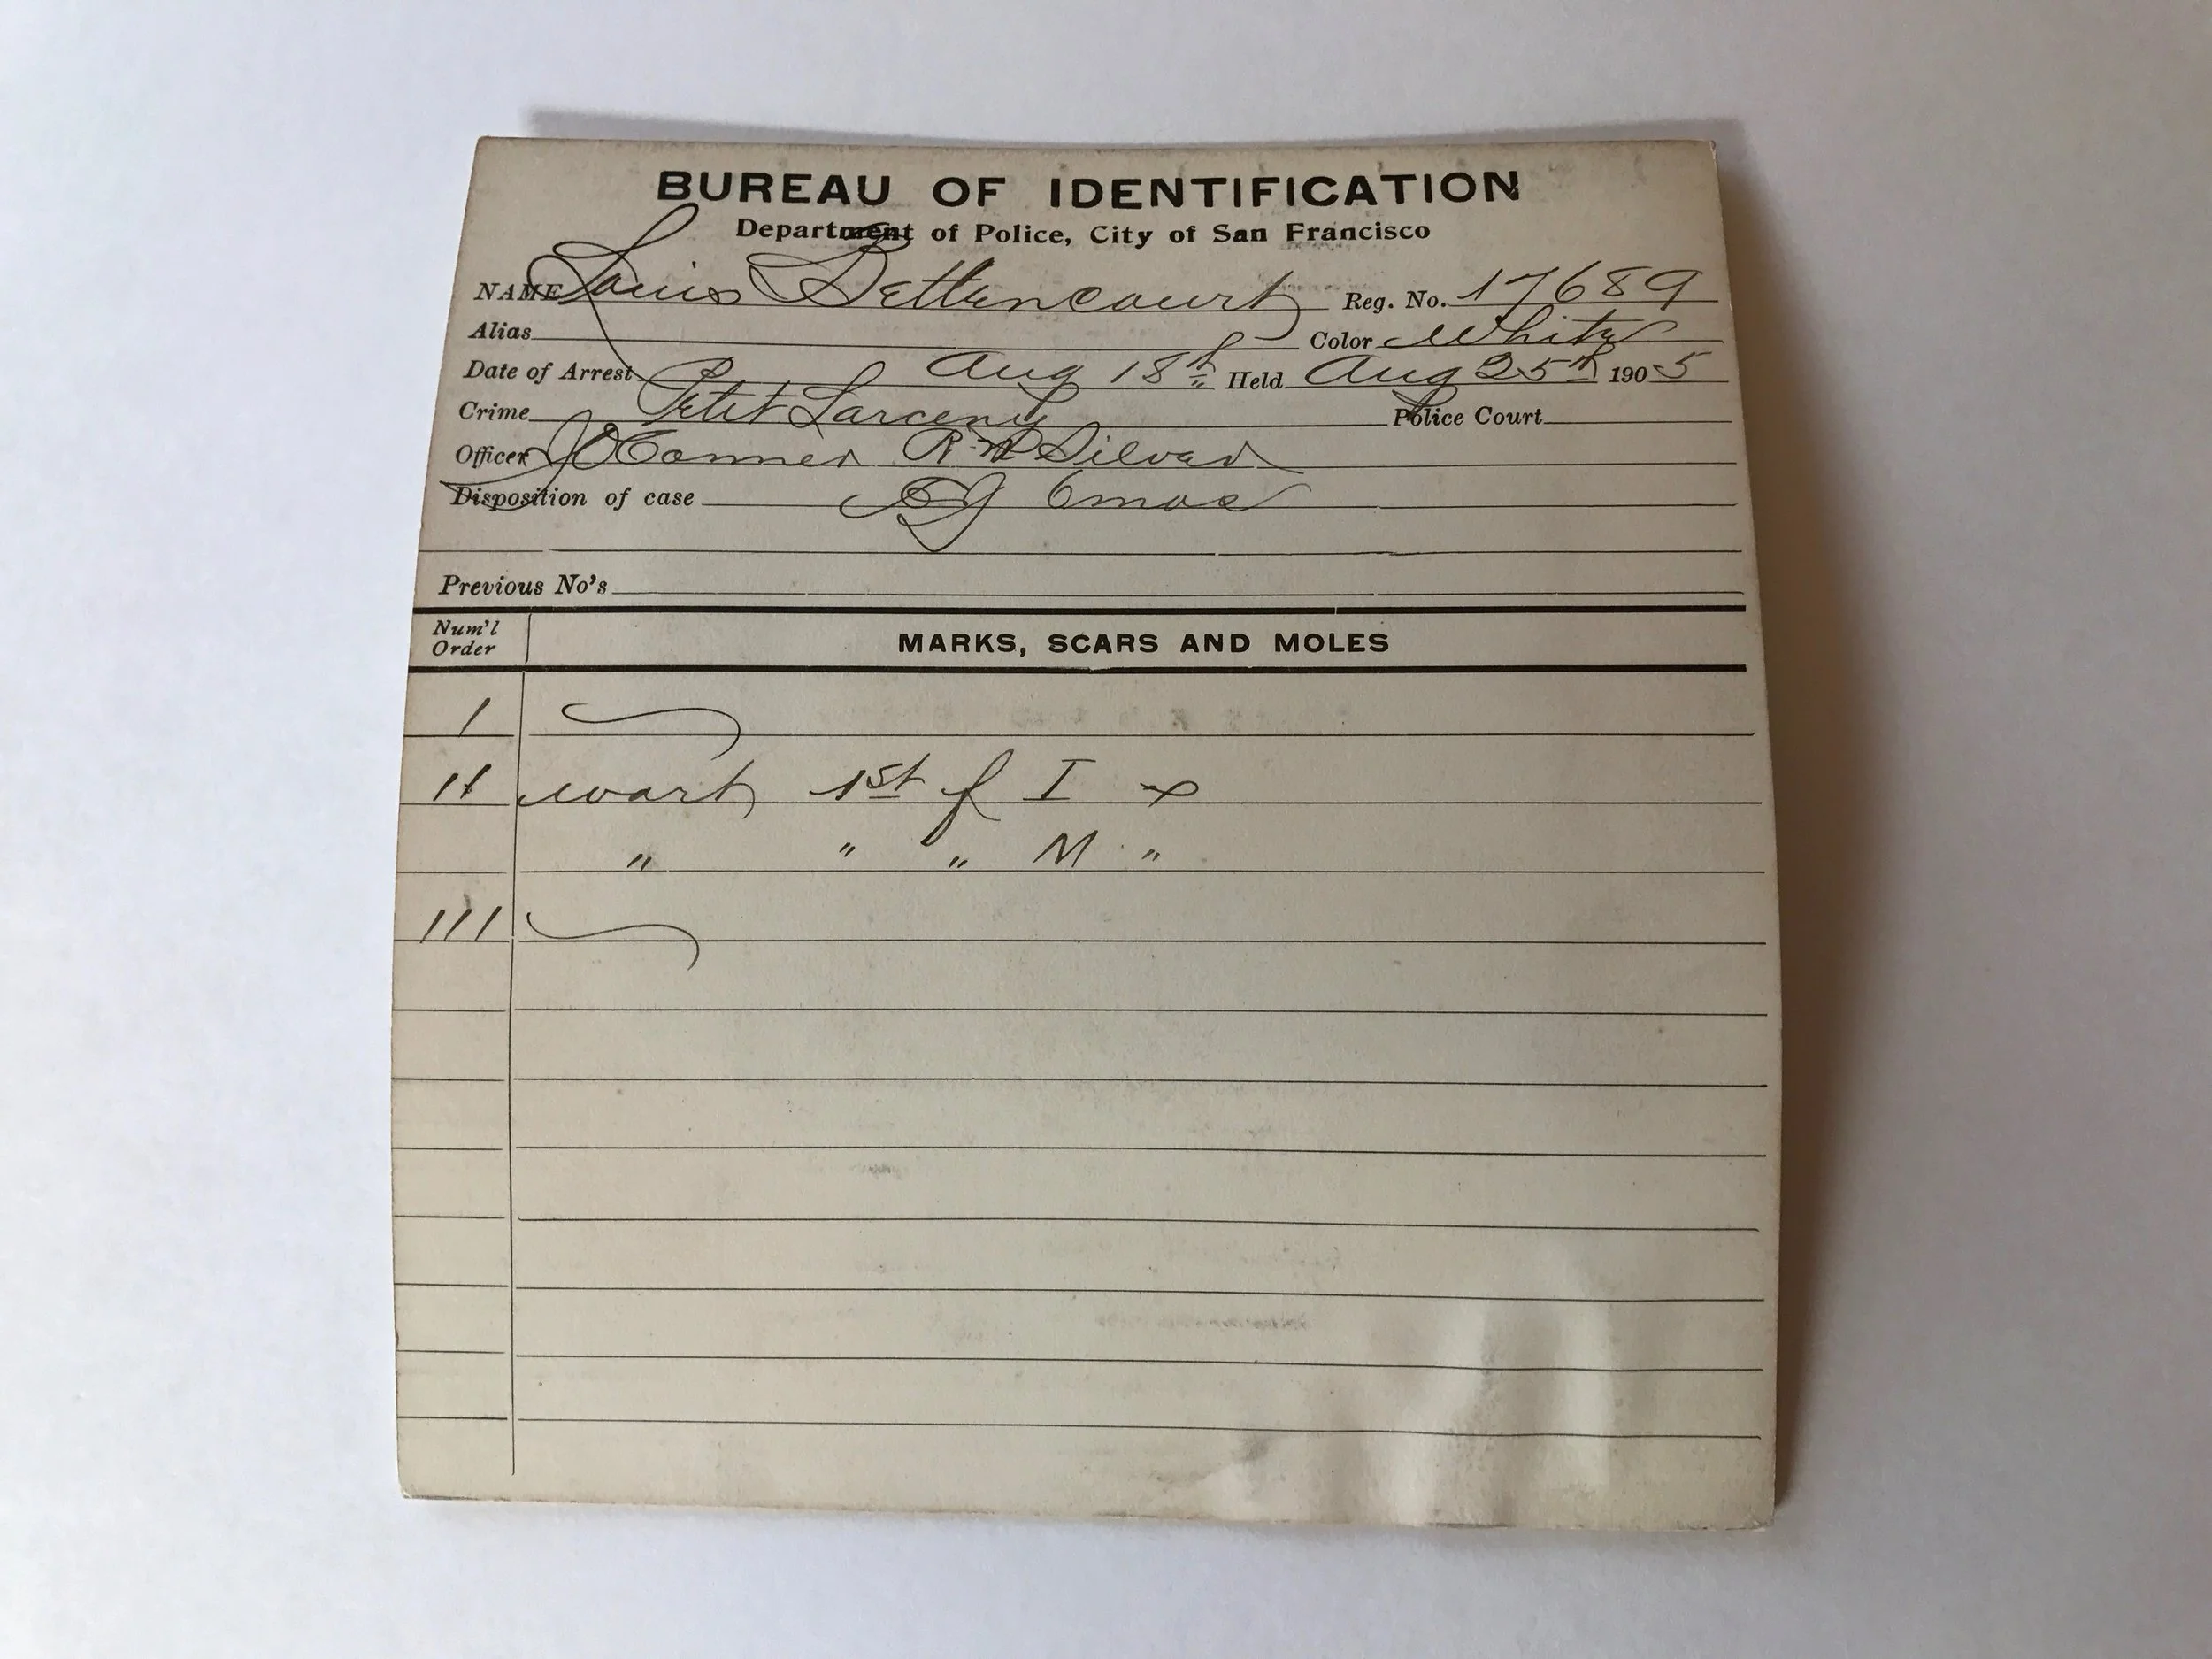 BUREAU OF IDENTIFICATION
Department of Police, City of San Francisco
NAME Louis Bettencourt Reg. No. 17689
Alias Color White
Date of Arrest Aug 18th Held Aug 25th 1905
Crime Petit Larceny Police Court
Officer J O'Conner R Silver
Disposition of case 6 mos
Previous No's
Num'l Order MARKS, SCARS AND MOLES
I
II wart 1st f I
" " " M "
III